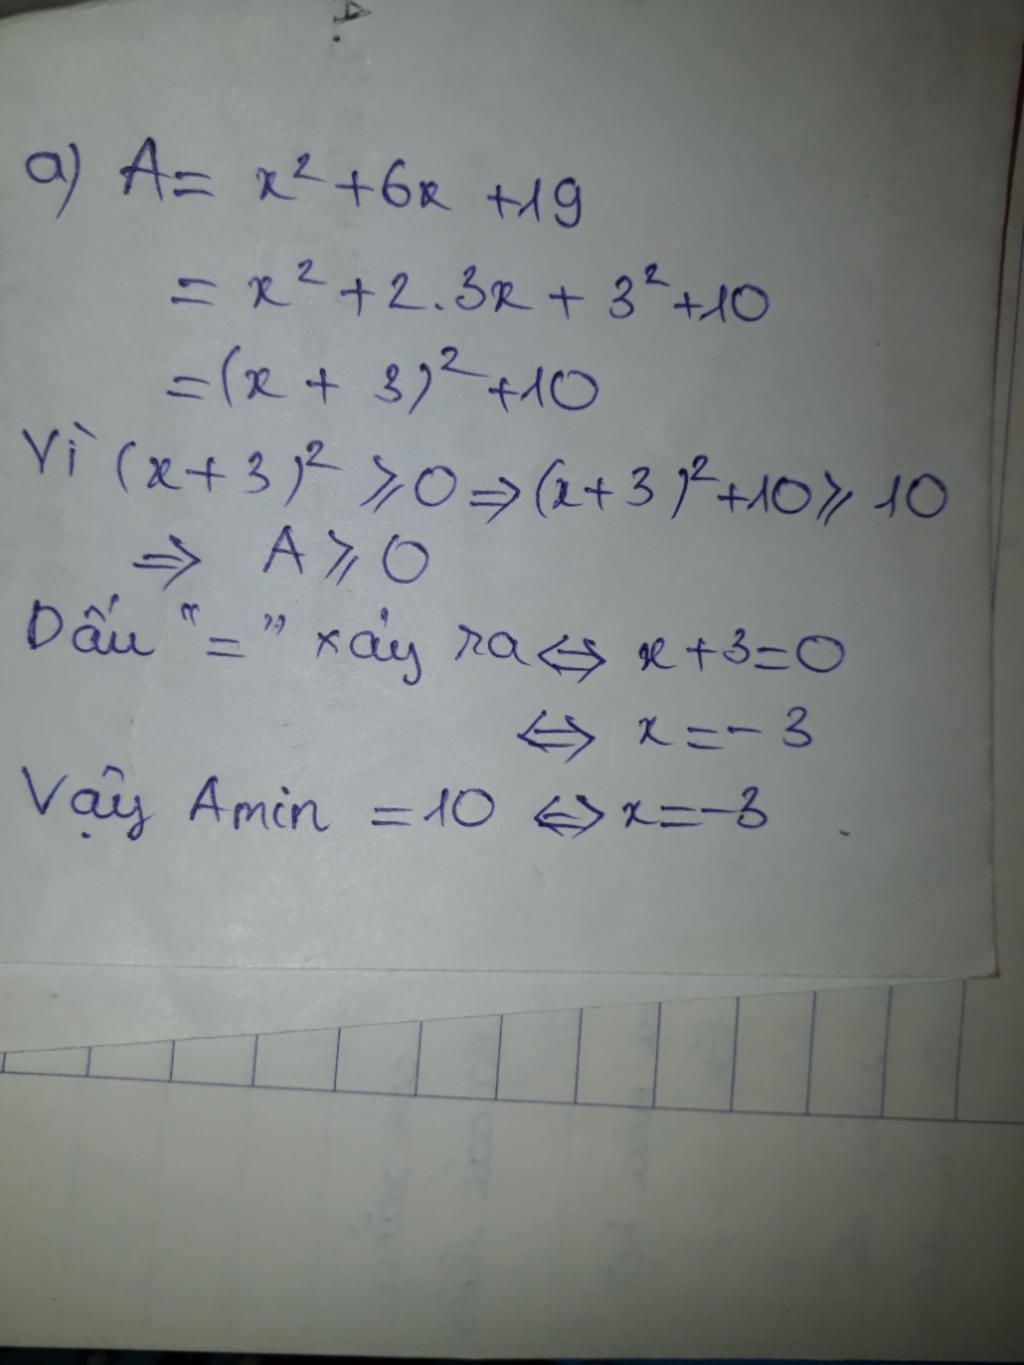 a) A = x² + 6x + 19
= x² + 2.3x + 3² + 10
= (x + 3)² + 10
Vì (x + 3)² ⩾ 0 ⇒ (x + 3)² + 10 ⩾ 10
⇒ A ⩾ 0
Dấu "=" xảy ra ⇔ x + 3 = 0
⇔ x = - 3
Vậy Amin = 10 ⇔ x = -3